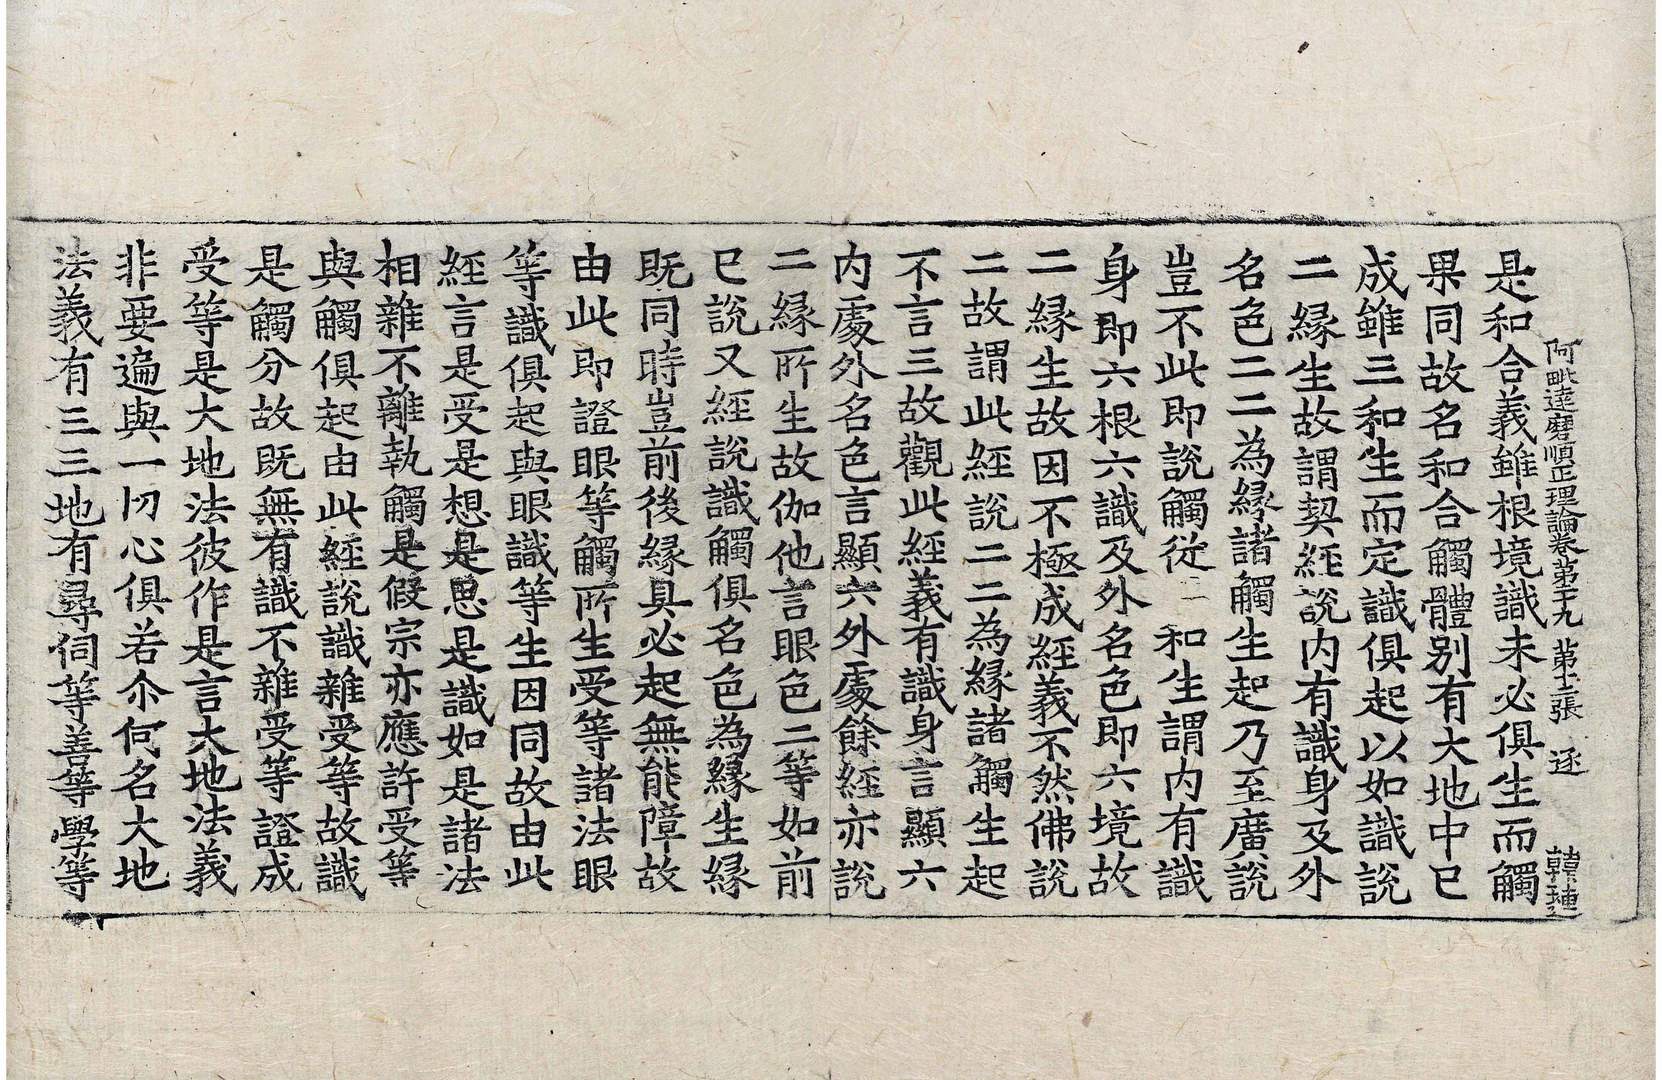 阿毗達磨順正理論卷第十九 第十二張 逐 韓璉
是和合義雖根境識未必俱生而觸
果同故名和合觸體別有大地中已
成雖三和生而定識俱起以如識說
二緣生故謂契經說內有識身及外
名色二二為緣諸觸生起乃至廣說
豈不此即說觸從三和生謂內有識
身即六根六識及外名色即六境故
二緣生故因不極成經義不然佛說
二故謂此經說二二為緣諸觸生起
不言三故觀此經義有識身言顯六
內處外名色言顯六外處餘經亦說
二緣所生故伽他言眼色二等如前
已說又經說識觸俱名色為緣生緣
既同時豈前後緣具必起無能障故
由此即證眼等觸所生受等諸法眼
等識俱起與眼識等生因同故由此
經言是受是想是思是識如是諸法
相雜不離執觸是假宗亦應許受等
與觸俱起由此經說識雜受等故識
是觸分故既無有識不雜受等證成
受等是大地法彼作是言大地法義
非要遍與一切心俱若尒何名大地
法義有三三地有尋伺等善等學等